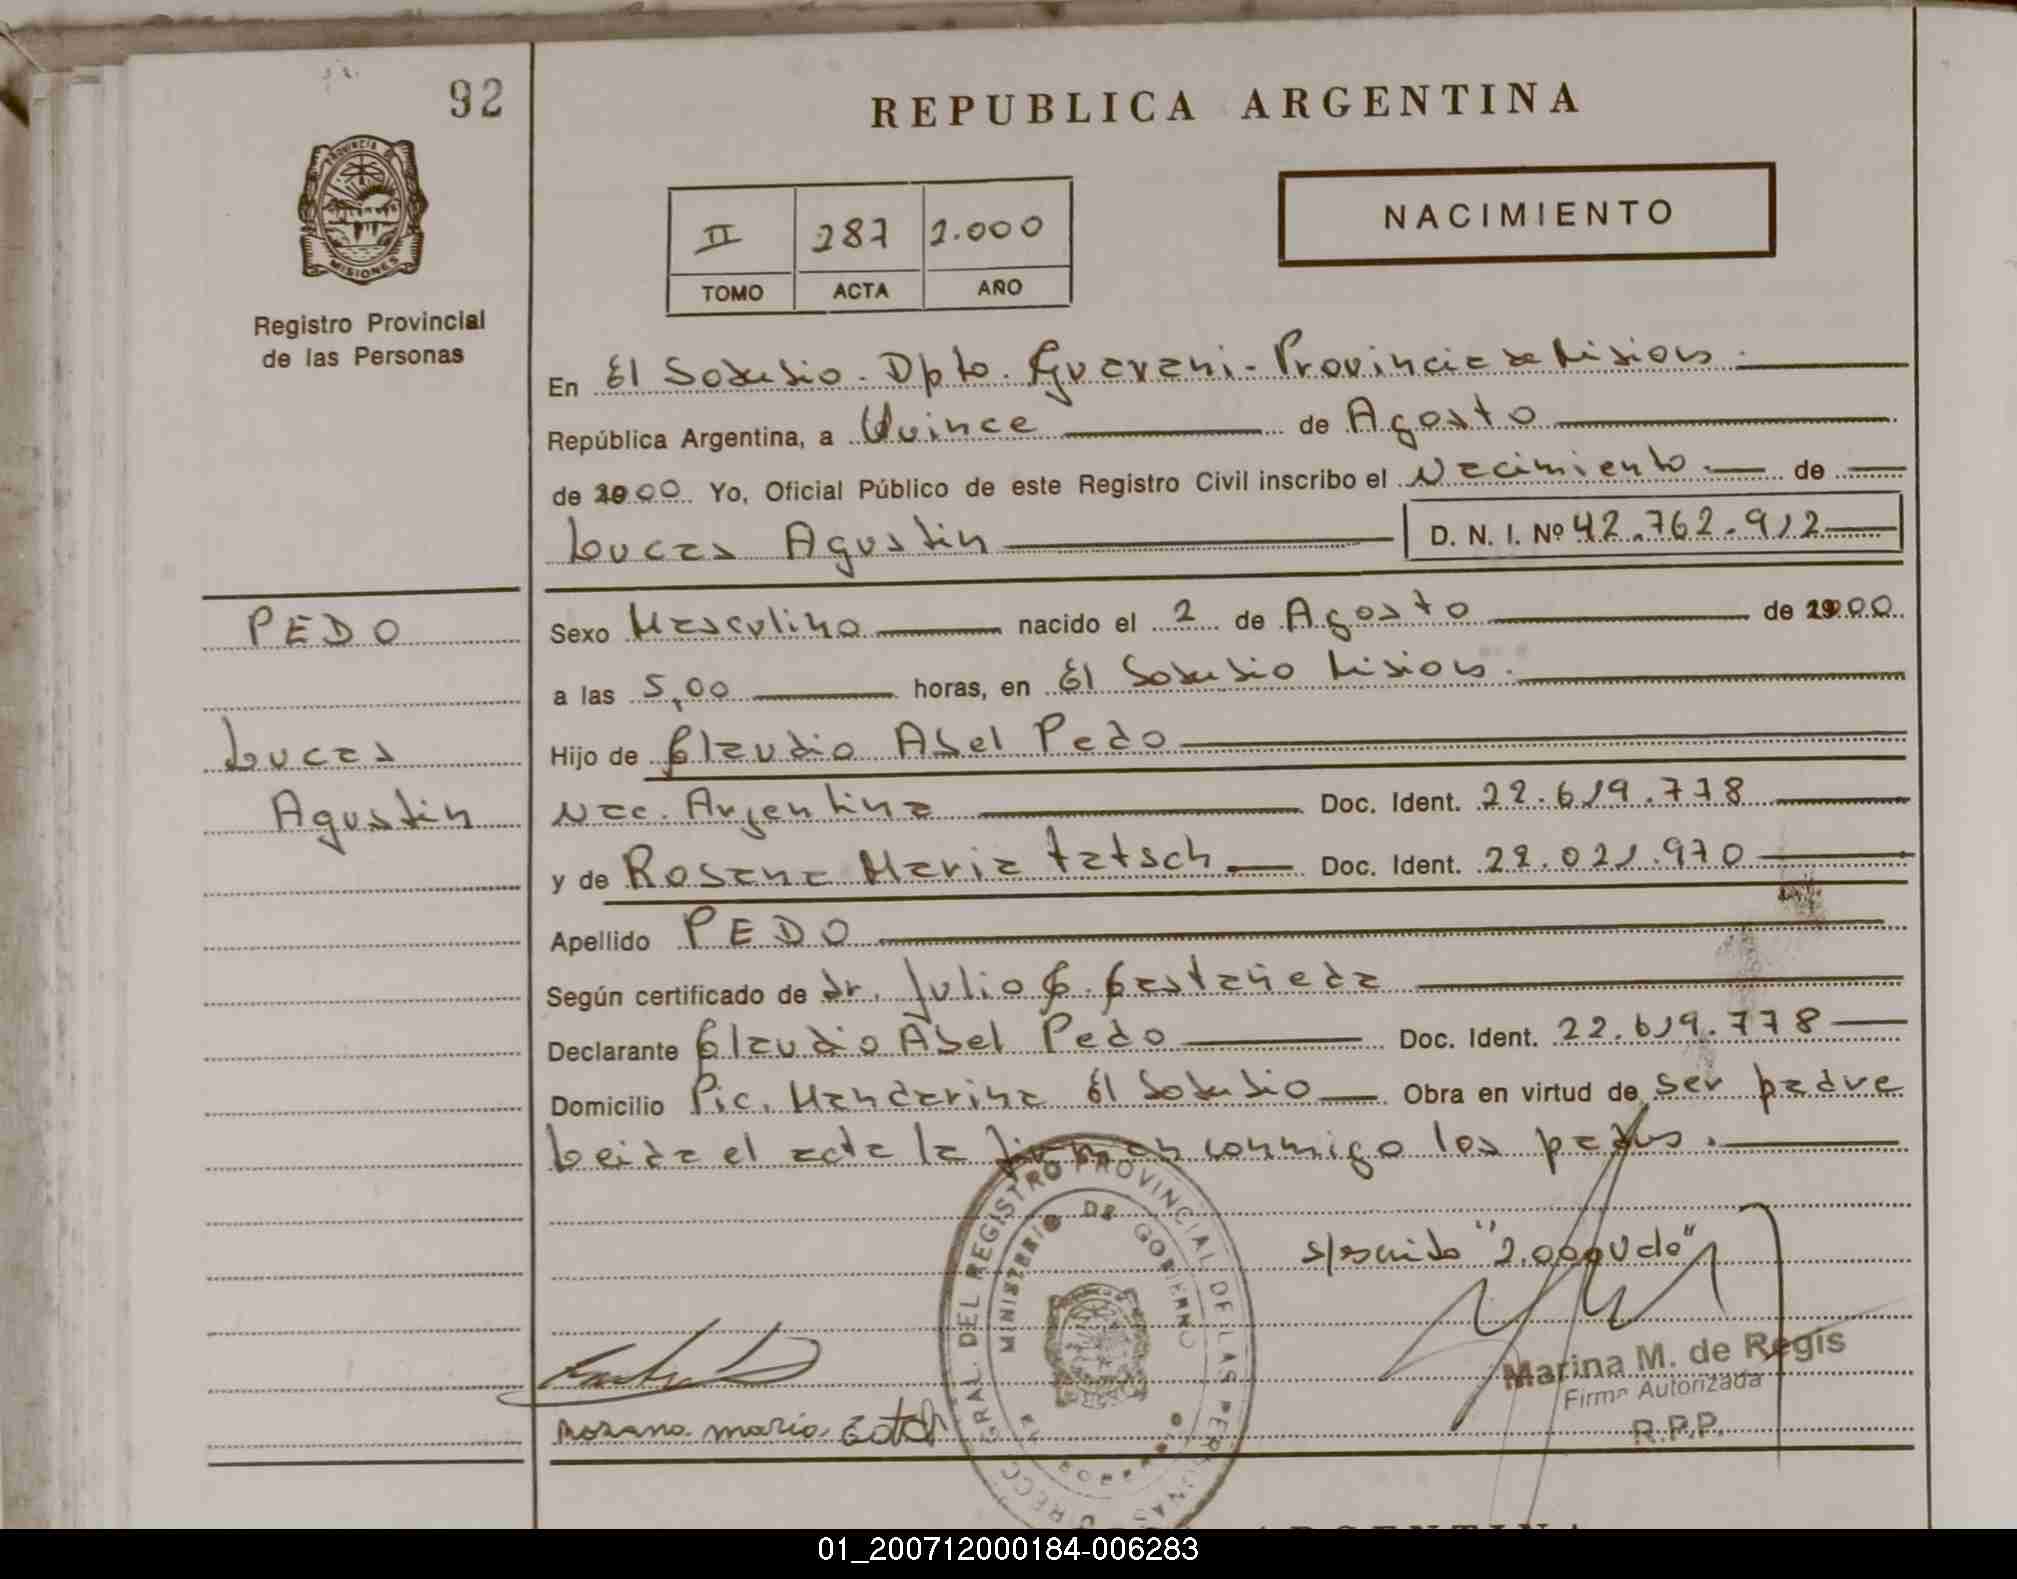 92
REPUBLICA ARGENTINA
PROVINCIA DE
MISIONES
Registro Provincial
de las Personas
II 287 2.000
TOMO ACTA AÑO
NACIMIENTO
En El Soberbio. Dpto. Guarani - Provincia de Misiones.
República Argentina, a Quince de Agosto
de 2000 Yo, Oficial Público de este Registro Civil inscribo el Nacimiento de
Lucas Agustin D. N. I. Nº 42.762.912
PEDO
Sexo Masculino nacido el 2 de Agosto de 2000
a las 5,00 horas, en El Soberbio Misiones.
Lucas
Hijo de Claudio Abel Pedo
Agustin
Nac. Argentina Doc. Ident. 22.619.778
y de Rosana Maria Tatsch Doc. Ident. 22.021.970
Apellido PEDO
Según certificado de dr. Julio C. Castañeda
Declarante Claudio Abel Pedo Doc. Ident. 22.619.778
Domicilio Pic. Mandarina El Soberbio Obra en virtud de ser padre
Leida el acta la firman conmigo los padres.
s/escrito "2.000 Vdo"
DIRECC GRAL DEL REGISTRO PROVINCIAL DE LAS PERSONAS
MINISTERIO DE GOBIERNO
Marina M. de Regis
Firma Autorizada
R.P.P.
Rosana maria
ARGENTINA
01_200712000184-006283